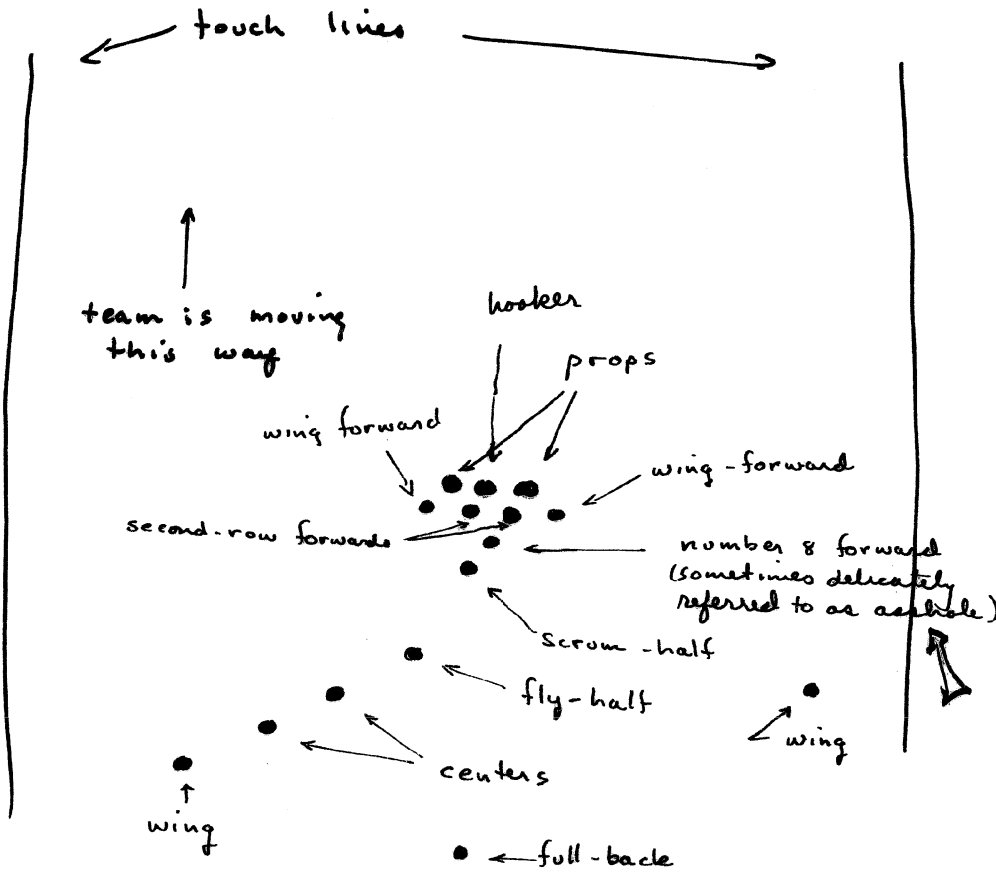 touch lines
team is moving
this way
hooker
props
wing forward
wing-forward
second-row forwards
number 8 forward
(sometimes delicately
referred to as asshole)
scrum-half
fly-half
wing
centers
wing
full-back